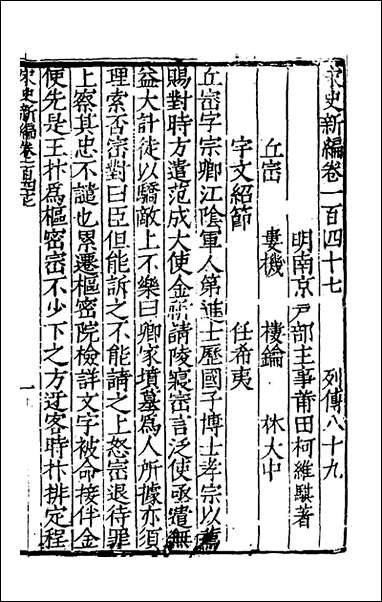 宋史新編卷一百四十七　列傳八十九
明南京戶部主事莆田柯維騏著
丘崈　婁機　樓鑰　林大中
宇文紹節　任希夷
丘崈字宗卿江陰軍人第進士歷國子博士孝宗以薦
賜對時方遣范成大使金祈請陵寢崈言泛使亟遣無
益大計徒以驕敵上不樂曰卿家墳墓為人所據亦須
理索否崈對曰臣但能訴之不能請之上怒崈退待罪
上察其忠不譴也累遷樞密院檢詳文字被命接伴金
使先是王抃為樞密崈不少下之方迓客時抃排定程
宋史新編卷一百四十七
一